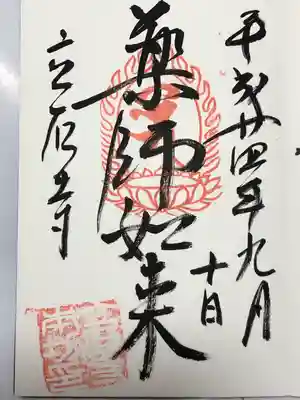 平成廿四年九月
十日
薬師如来
立石寺